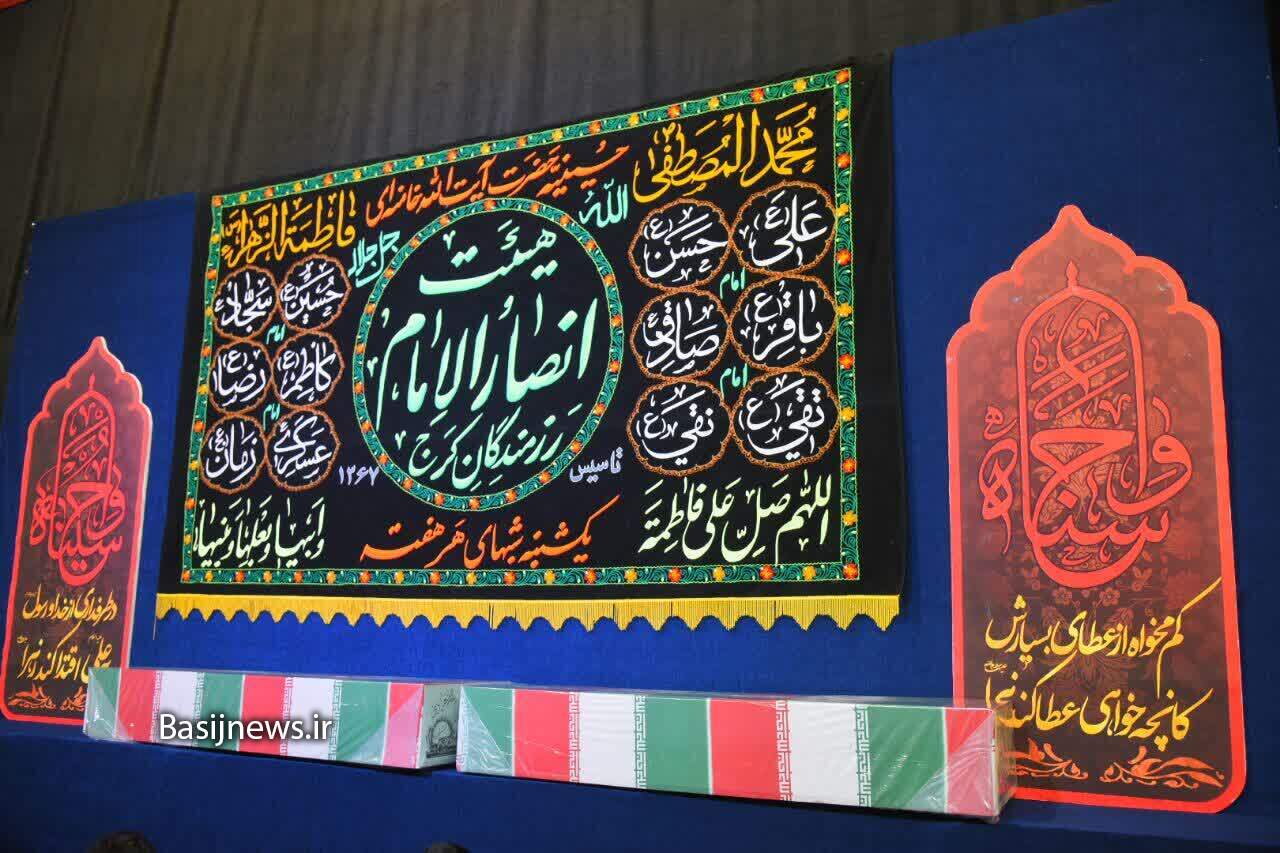 محمد المصطفی
حسینیه حضرت آیت الله خامنه ای
فاطمة الزهراء
الله
جل جلاله
علی (ع)
حسن (ع)
امام
باقر (ع)
صادق (ع)
امام
تقی (ع)
نقی (ع)
هیئت
انصار الامام
رزمندگان کرج
حسین (ع)
سجاد (ع)
امام
کاظم (ع)
رضا (ع)
امام
عسکری (ع)
زمان (عج)
تاسیس
۱۳۶۷
اللهم صل علی فاطمة
و ابیها و بعلها و بنیها
یکشنبه شبهای هر هفته
کم مخواه از عطای بسیارش
کانچه خواهی عطا کند زهرا
در طرفداری از خدا و رسول
علی اقتدا کند زهرا
Basijnews.ir